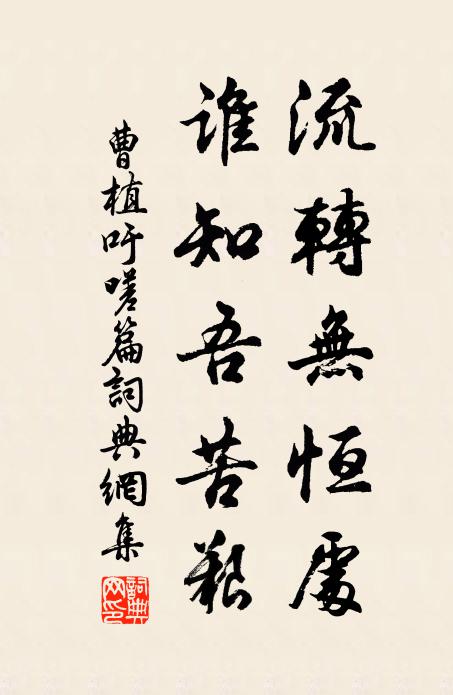 流轉無恒處
誰知吾苦艱
曹植吁嗟篇詞典網集
詞典網印